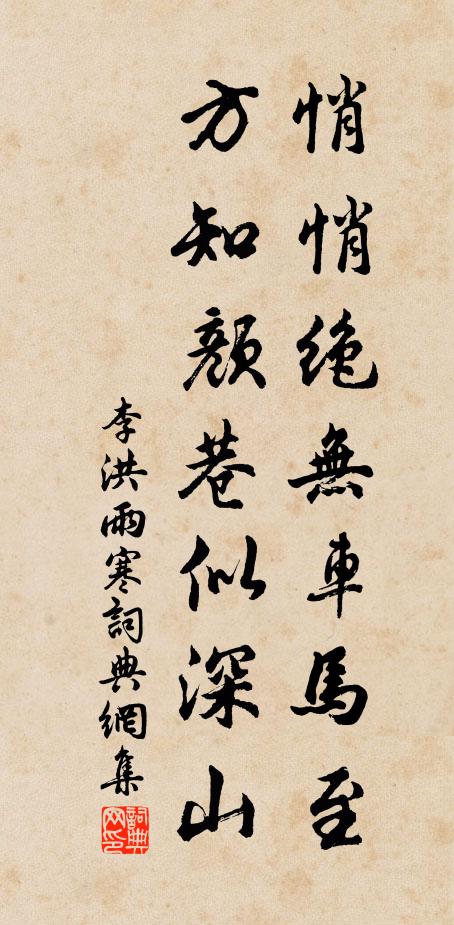 悄悄絕無車馬至
方知顏巷似深山
李洪雨寒詞典網集
詞典網印